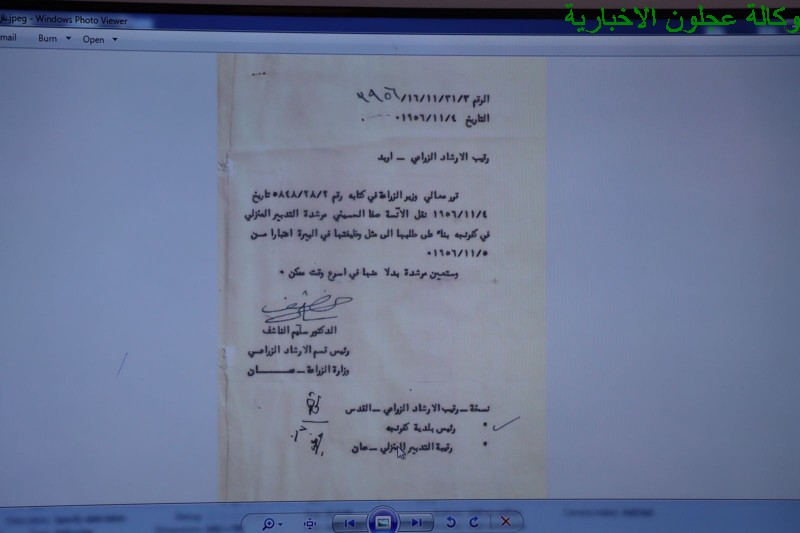 وكالة عجلون الاخبارية
jpeg - Windows Photo Viewer
Burn Open
الرقم ٣٩٥٦/١٦/١١/٣١/٣
التاريخ ١٩٥٦/١١/٤
رئيب الارشاد الزراعي – اربد
قرر معالي وزير الزراعة في كتابه رقم ٥٨٤٨/٢٨/٢ تاريخ
١٩٥٦/١١/٤ نقل الآنسة صفا الحسيني مرشدة التدبير المنزلي
في كفرنجه بناء على طلبها الى مثل وظيفتها في البيرة اعتبارا من
١٩٥٦/١١/٥٠
وستعين مرشدة بدلا عنها في اسرع وقت ممكن ٠
الدكتور سليم الناشف
رئيس قسم الارشاد الزراعي
وزارة الزراعة – عمان
نسخة – رئيب الارشاد الزراعي – القدس
" رئيس بلدية كفرنجه
" رئيبة التدبير المنزلي – عمان